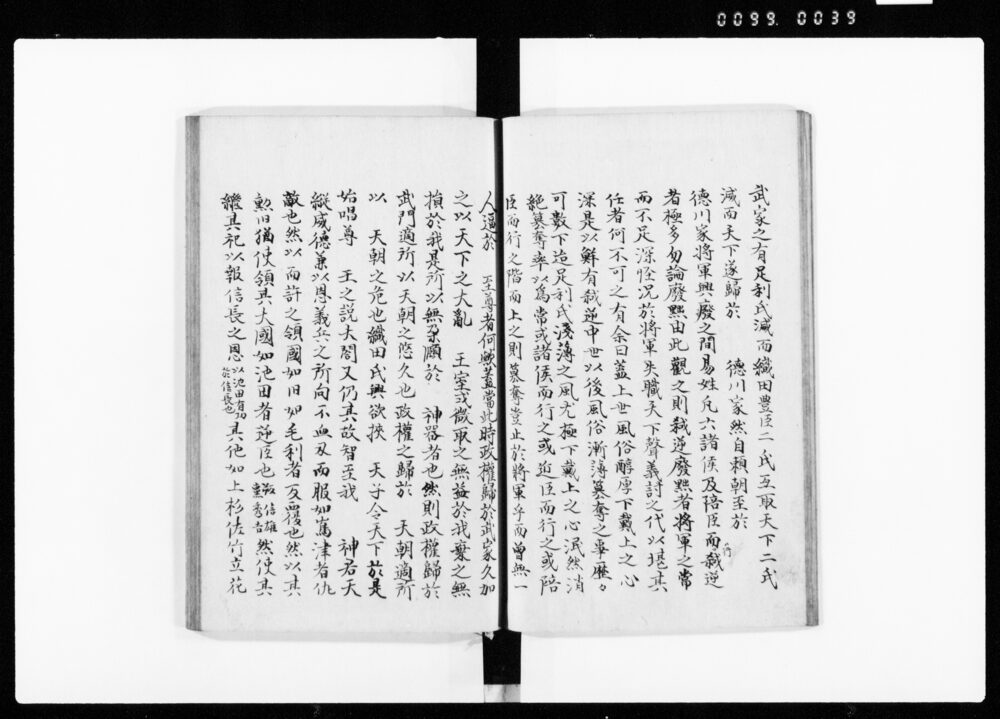 0099. 0039
武家之有足利氏滅而織田豐臣二氏互取天下二氏
滅而天下遂歸於　德川家然自賴朝至於
德川家將軍興廢之間易姓凡六諸侯及陪臣而弑逆
者極多勿論廢黜由此觀之則弑逆廢黜者將軍之常
而不足深怪況於將軍失職天下聲義討之代以堪其
任者何不可之有余曰蓋上世風俗醇厚下戴上之心
深是以鮮有弑逆中世以後風俗漸薄簒奪之事歷々
可數下迨足利氏澆薄之風尤極下戴上之心泯然消
絕簒奪率以爲常或諸侯而行之或近臣而行之或陪
臣而行之階而上之則簒奪豈止於將軍乎而曾無一
人逼於　至尊者何歟蓋當此時政權歸於武家久加
之以天下之大亂　王室式微取之無益於我棄之無
損於我是所以無朶頤於　神器者也然則政權歸於
武門適所以天朝之悠久也政權之歸於　天朝適所
以　天朝之危也織田氏興欲挾　天子令天下於是
始唱尊　王之説大閤又仍其故智至我　神君天
縱威德兼以恩義兵之所向不血刃而服如島津者仇
敵也然以而許之領國如舊如毛利者反覆也然以其
勲旧猶使領其大國如池田者逆臣也然使其
繼其祀以報信長之恩以池田有功於信長也其他如上杉佐竹立花